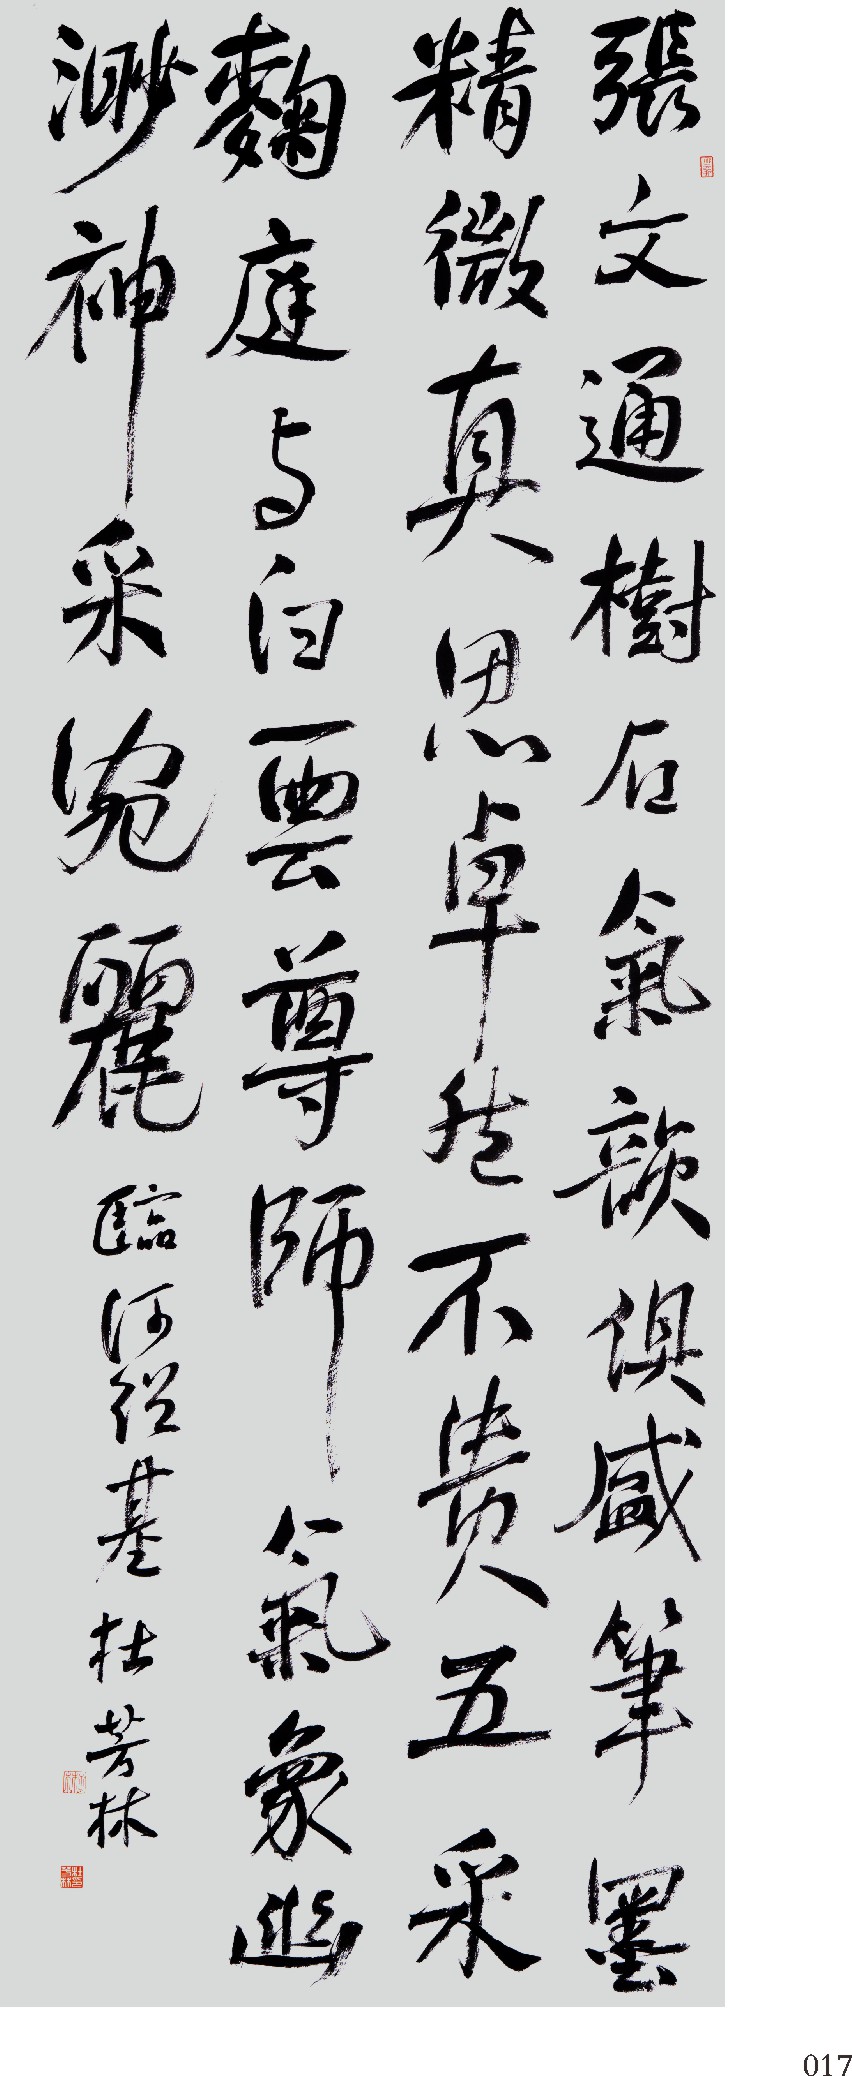 張文通樹石氣韻俱盛筆墨
精微真思卓然不貴五采
麴庭与白雲尊師氣象幽
渺神采宛麗
臨何紹基 杜芳林
017